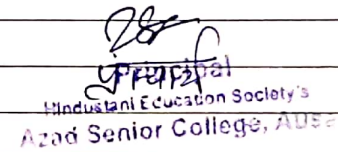 प्राचार्य
Principal
Hindustani Education Society's
Azad Senior College, Ausa